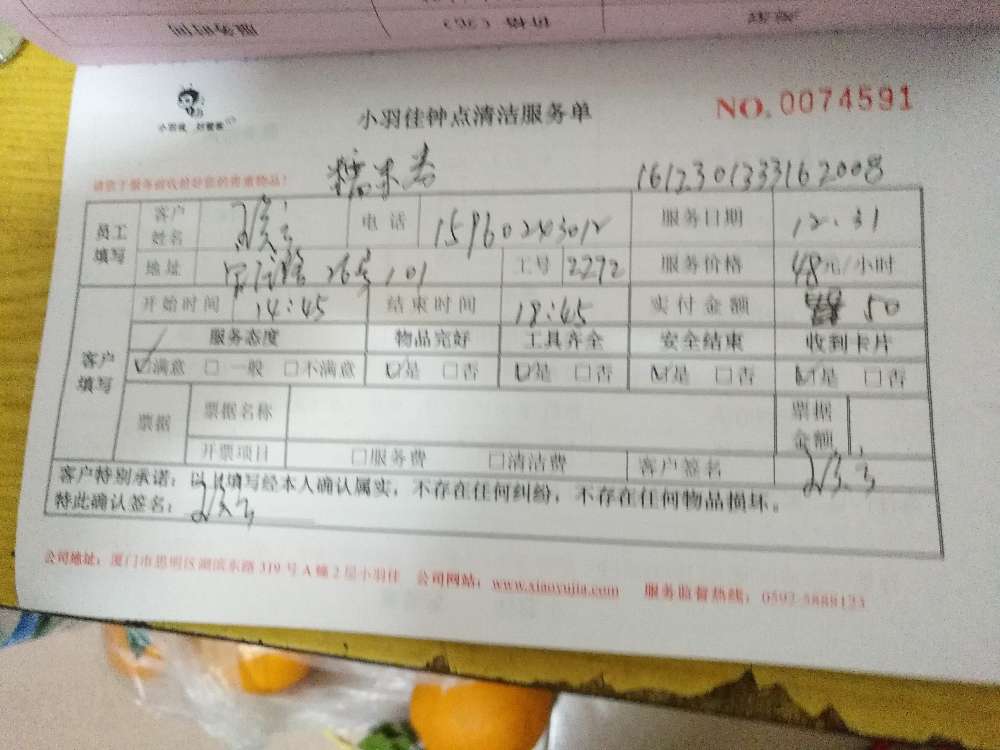 小羽佳钟点清洁服务单
NO.0074591
请您于服务前收拾好您的贵重物品!
161230133316 2008
员工填写 客户姓名 电话 15960243012 服务日期 12.31
地址 26号101 工号 2272 服务价格 48元/小时
客户填写 开始时间 14:45 结束时间 18:45 实付金额 50
服务态度 物品完好 工具齐全 安全结束 收到卡片
☑满意 □一般 □不满意 ☑是 □否 ☑是 □否 ☑是 □否 ☑是 □否
票据 票据名称 票据金额
开票项目 □服务费 □清洁费 客户签名
客户特别承诺:以上填写经本人确认属实,不存在任何纠纷,不存在任何物品损坏。
特此确认签名:
公司地址:厦门市思明区湖滨东路319号A幢2层小羽佳 公司网站:www.xiaoyujia.com 服务监督热线:0592-5888123